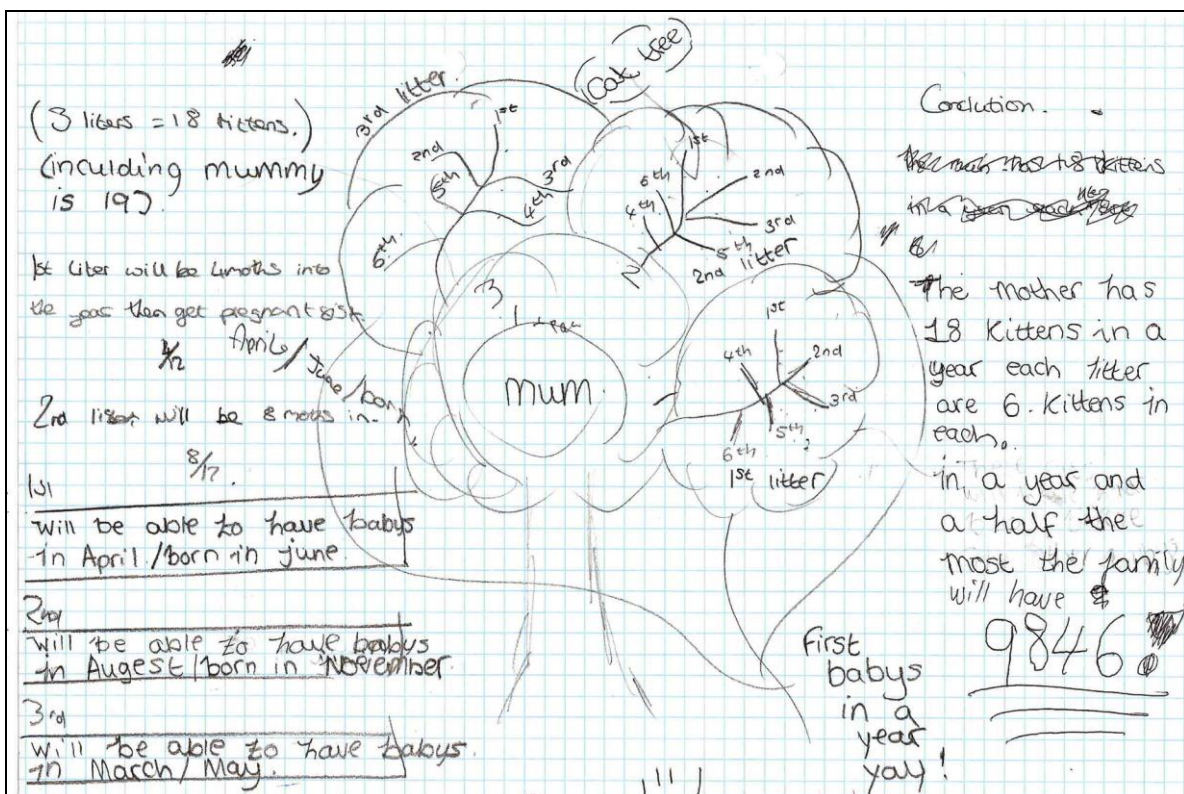 (3 liters = 18 kittens.)
(inculding mummy
is 19)
1st liter will be 4moths into
the year then get pregnant
4/12
April/June/born
2nd liter will be 8 moths in.
8/12.
1st
will be able to have babys
in April./born in june.
2nd
will be able to have babys
in Augest/born in November
3rd
will be able to have babys.
in March/May.
Cat tree
3rd litter.
1st
2nd
3rd
4th
5th
6th
3
1st
2nd
3rd
4th
5th
6th
2
2nd litter
mum
1st
2nd
3rd
4th
5th
6th
1st litter
First
babys
in a
year
yay!
Conclution.
The mother has
18 kittens in a
year each litter
are 6. kittens in
each.
in a year and
a half the
most the family
will have
9846!